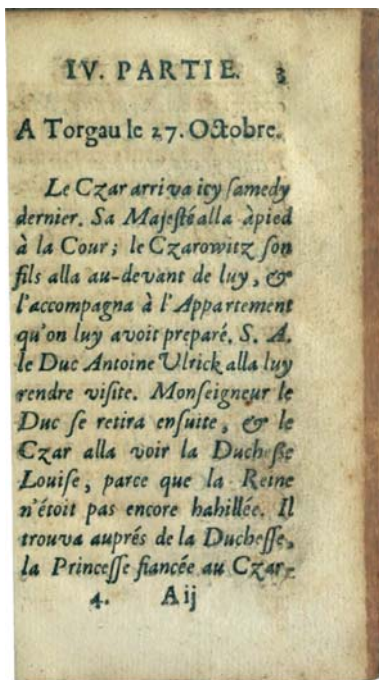 IV. PARTIE. 3
A Torgau le 27. Octobre.
Le Czar arriva icy ſamedy
dernier. Sa Majeſté alla à pied
à la Cour ; le Czarowitz ſon
fils alla au-devant de luy, &
l'accompagna à l'Appartement
qu'on luy avoit preparé. S. A.
le Duc Antoine Ulrick alla luy
rendre viſite. Monſeigneur le
Duc ſe retira enſuite, & le
Czar alla voir la Ducheſſe
Louiſe, parce que la Reine
n'étoit pas encore habillée. Il
trouva auprés de la Ducheſſe,
la Princeſſe fiancée au Czar-
4. A ij